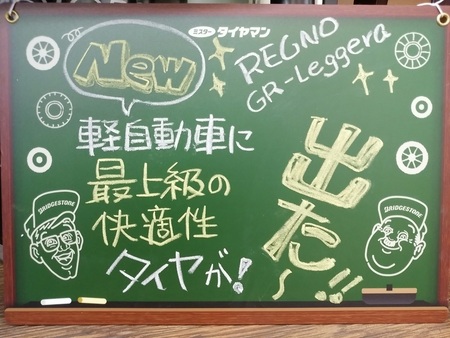 ミスタータイヤマン
New
REGNO
GR-Leggera
軽自動車に
最上級の
快適性
タイヤが!
出た〜!!
BRIDGESTONE
BRIDGESTONE